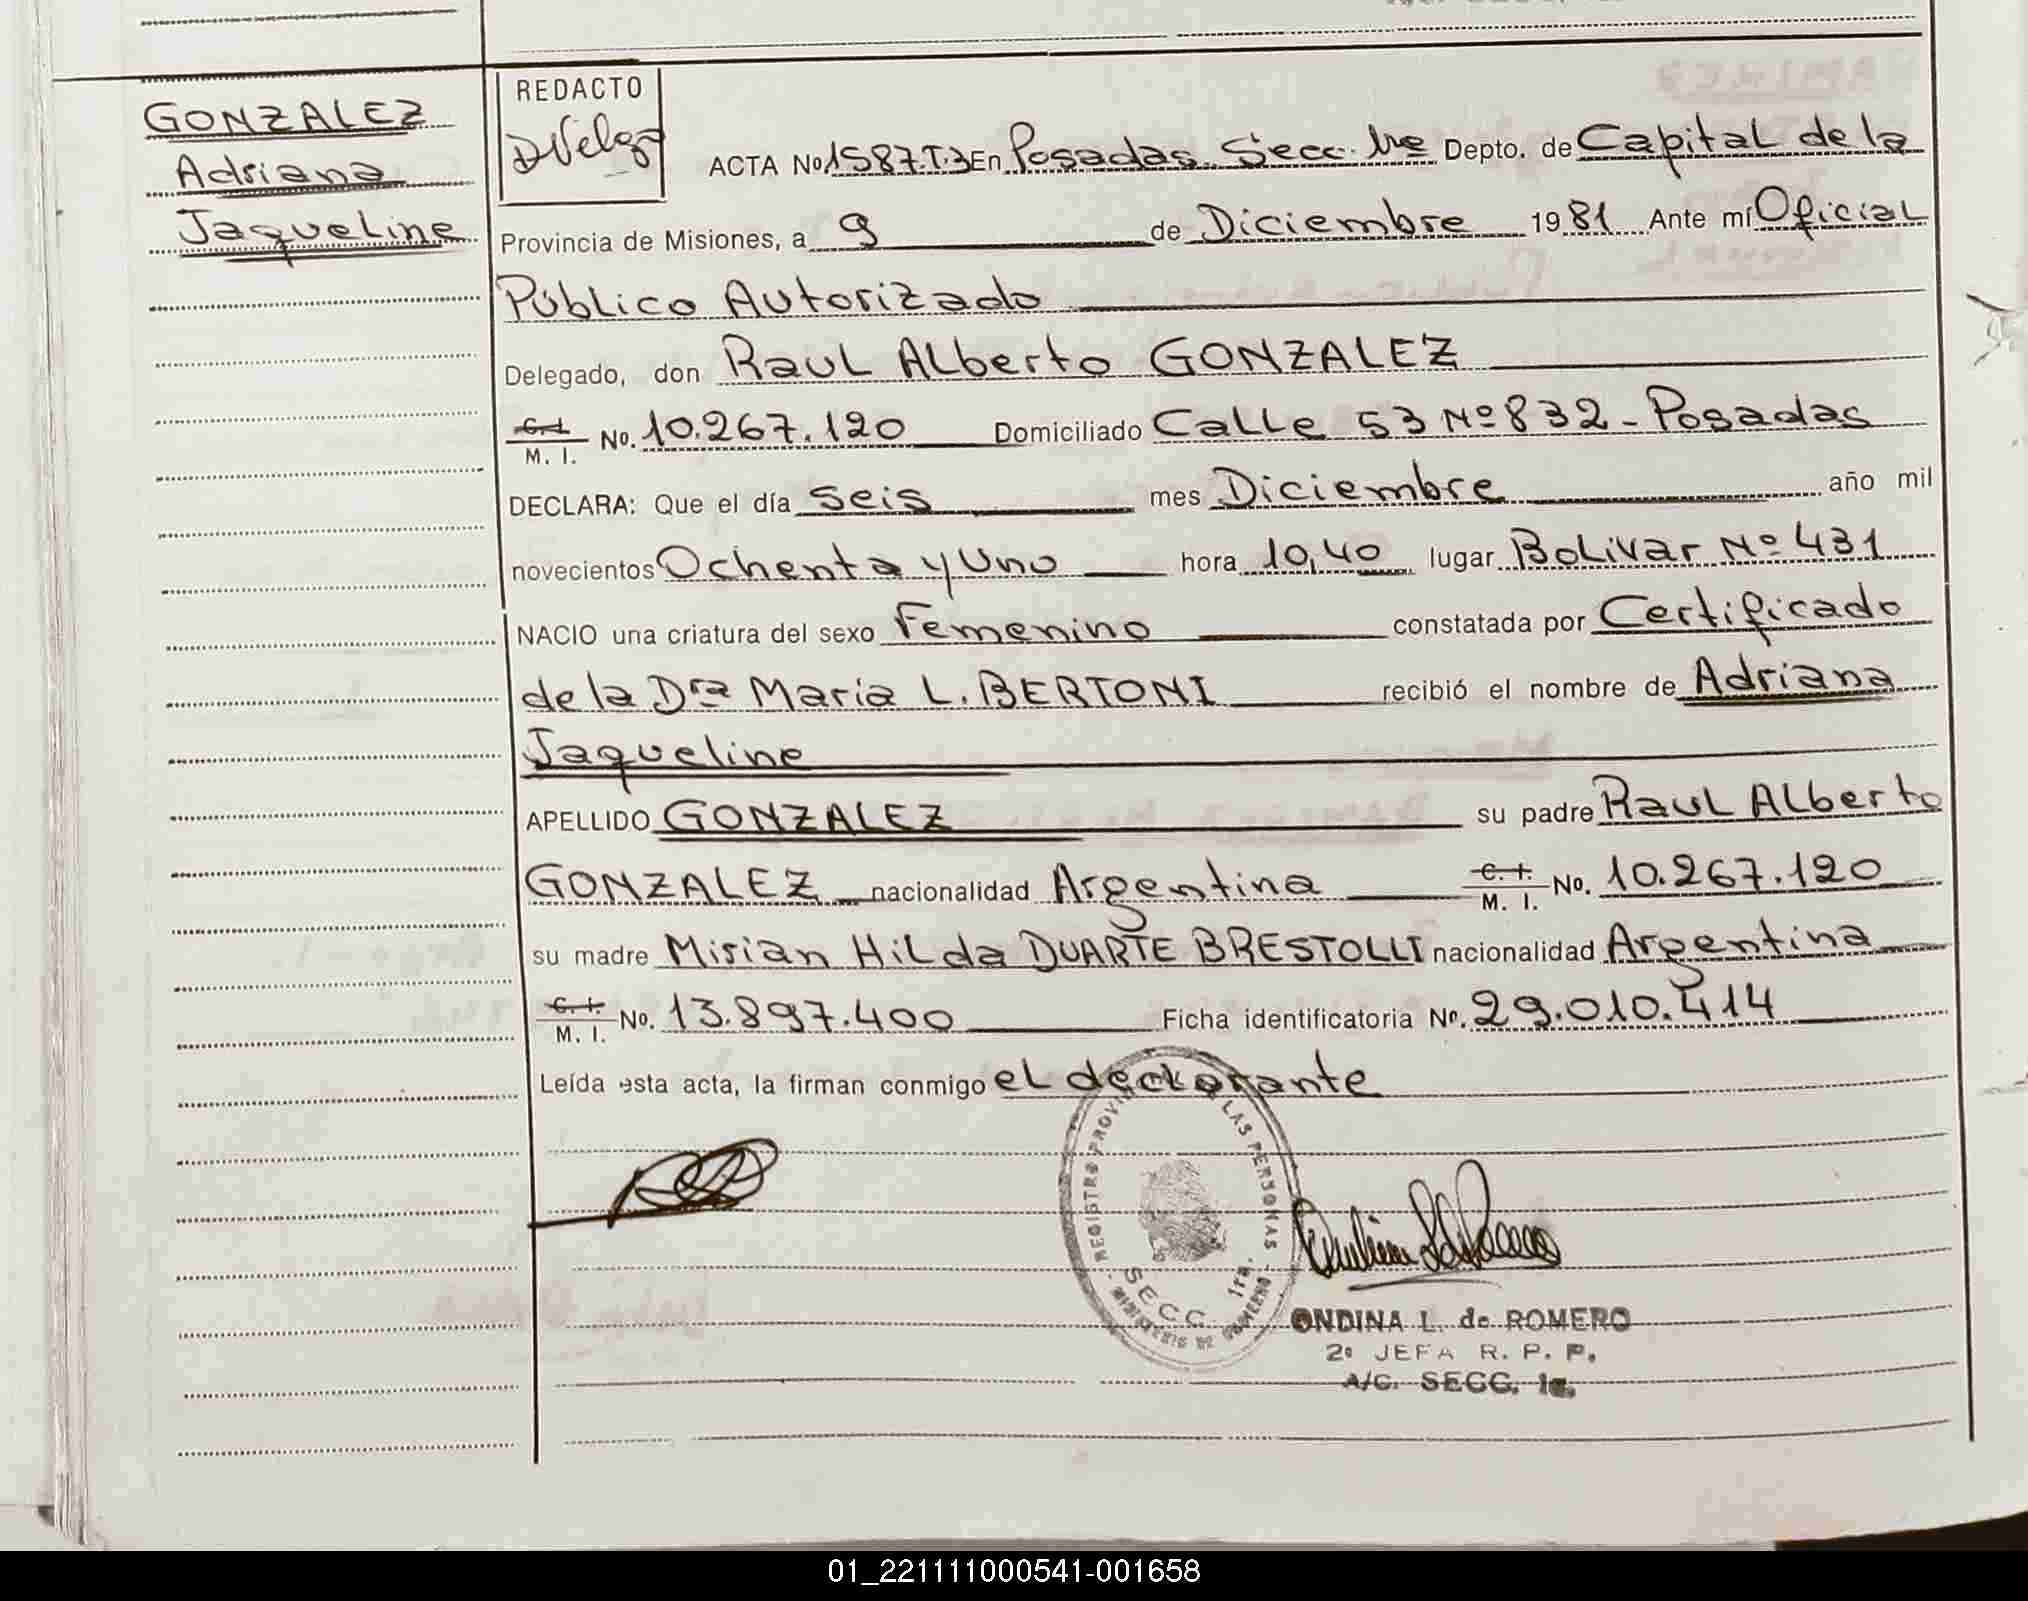 GONZALEZ
Adriana
Jaqueline
REDACTO
DVeloz
ACTA No. 1587.T.3 En Posadas Secc. 1ra Depto. de Capital de la
Provincia de Misiones, a 9 de Diciembre 1981 Ante mí Oficial
Público Autorizado
Delegado, don Raul Alberto GONZALEZ
C. I. M. I. No. 10.267.120 Domiciliado Calle 53 Nº 832 - Posadas
DECLARA: Que el día seis mes Diciembre año mil
novecientos Ochenta y Uno hora 10,40 lugar Bolivar Nº 431
NACIO una criatura del sexo Femenino constatada por Certificado
de la Dra Maria L. BERTONI recibió el nombre de Adriana
Jaqueline
APELLIDO GONZALEZ su padre Raul Alberto
GONZALEZ nacionalidad Argentina C. I. M. I. No. 10.267.120
su madre Mirian Hilda DUARTE BRESTOLLI nacionalidad Argentina
C. I. M. I. No. 13.897.400 Ficha identificatoria No. 29.010.414
Leída esta acta, la firman conmigo el declarante
REGISTRO PROVIN LAS PERSONAS
SECC. 1ra.
MINISTERIO DE GOBIERNO
ONDINA L. de ROMERO
2º JEFA R. P. P.
A/C. SECC. 1a.
01_221111000541-001658